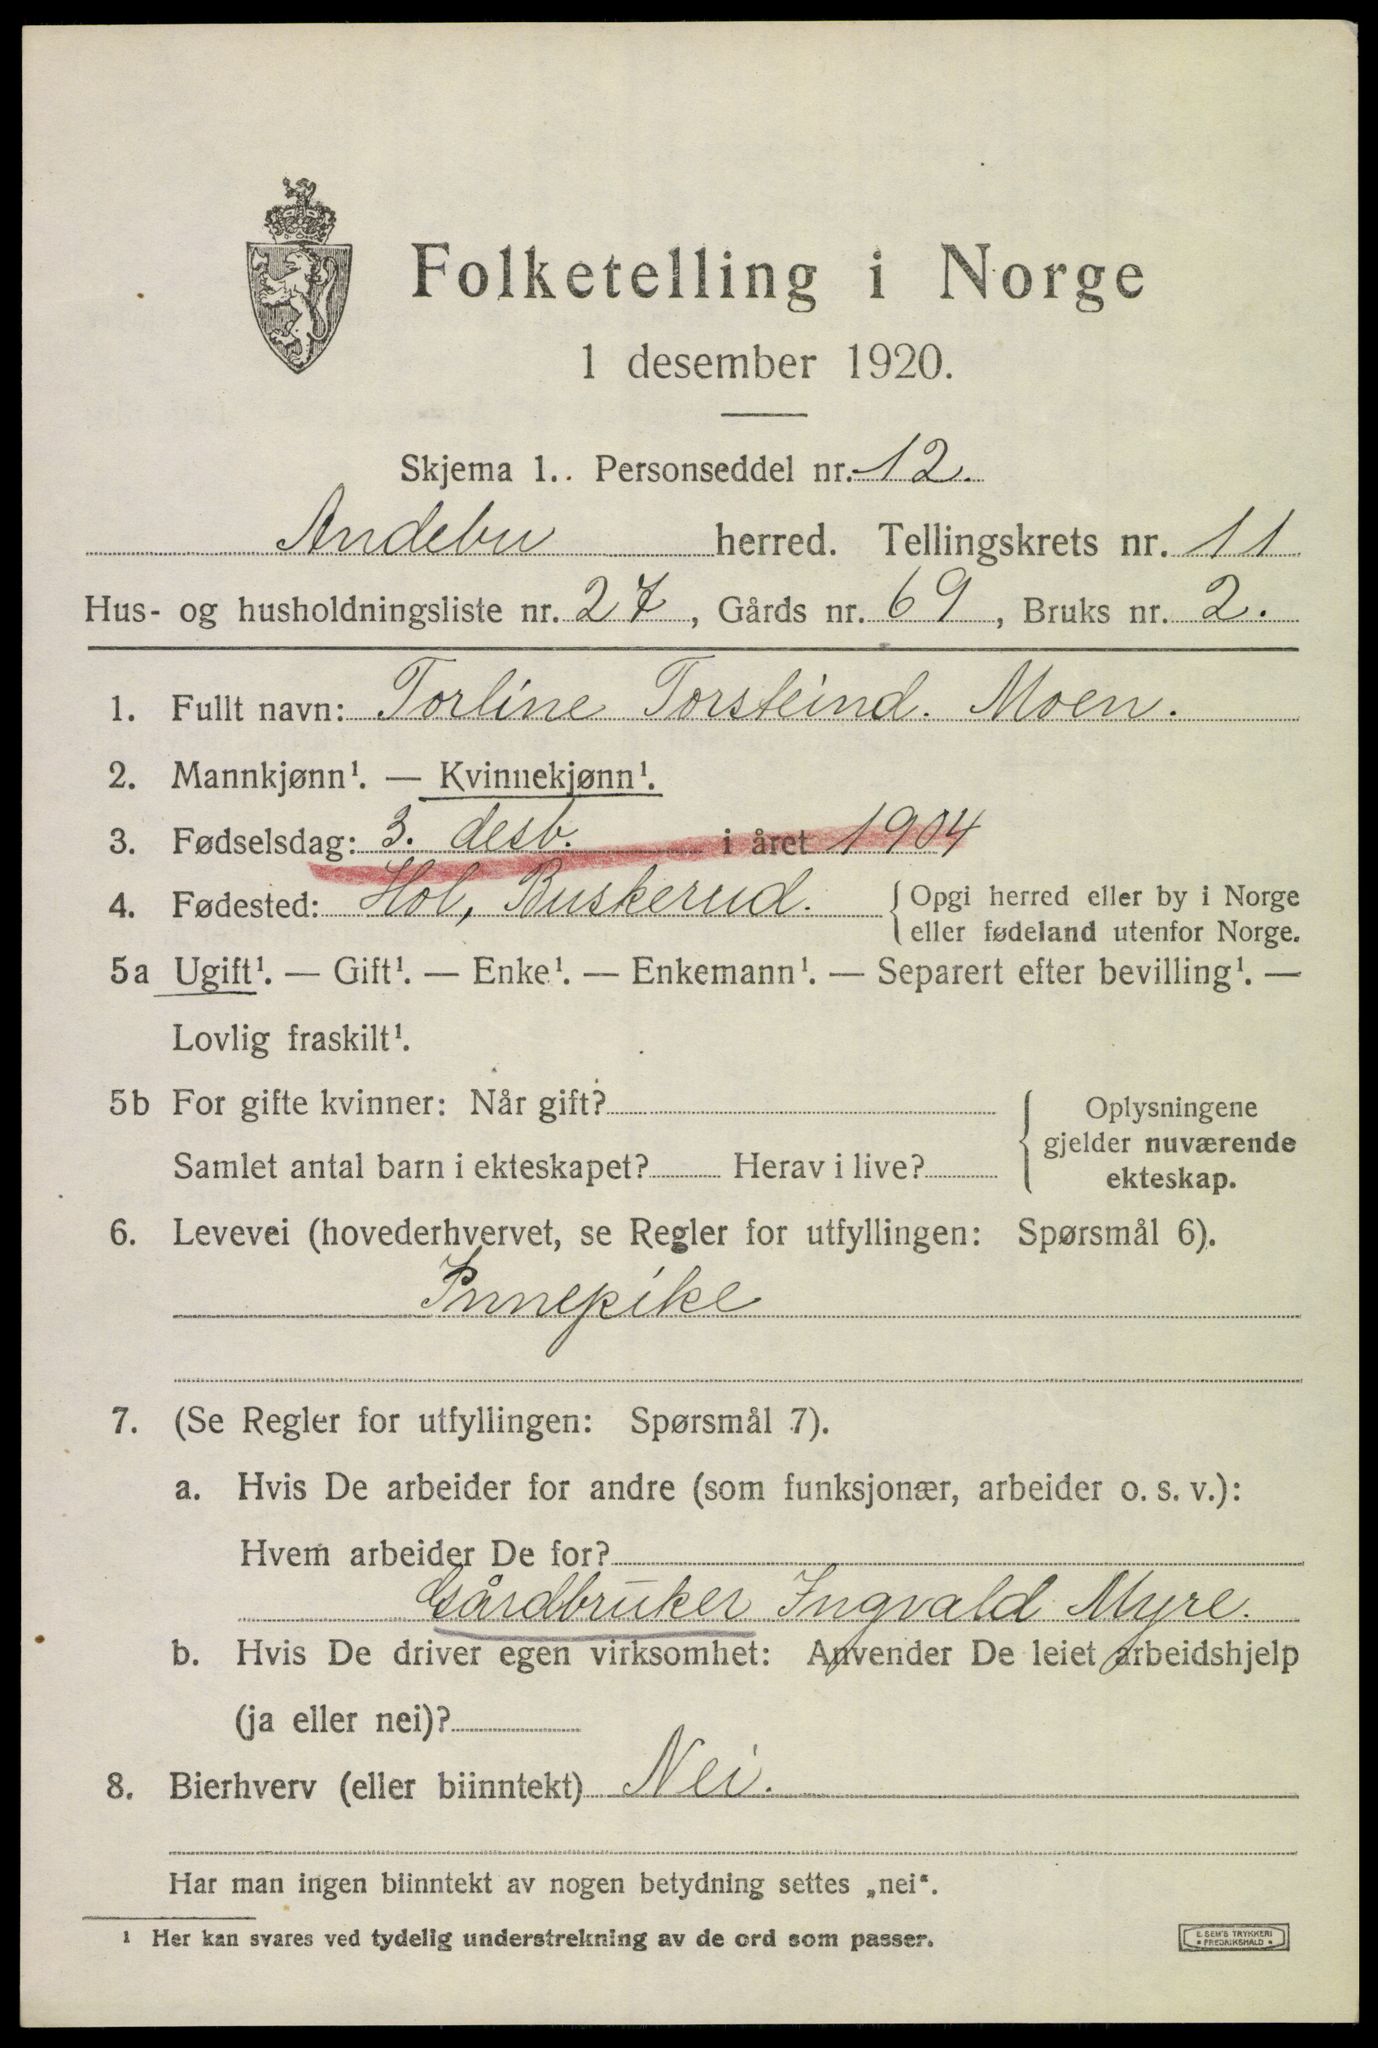 Folketelling i Norge
1 desember 1920.
Skjema 1. Personseddel nr. 12.
Andebu herred. Tellingskrets nr. 11
Hus- og husholdningsliste nr. 27, Gårds nr. 69, Bruks nr. 2.
1. Fullt navn: Torline Torsteind. Moen.
2. Mannkjønn¹. — Kvinnekjønn¹.
3. Fødselsdag: 3. desb. i året 1904
4. Fødested: Hol, Buskerud. { Opgi herred eller by i Norge
eller fødeland utenfor Norge.
5a Ugift¹. — Gift¹. — Enke¹. — Enkemann¹. — Separert efter bevilling¹. —
Lovlig fraskilt¹.
5b For gifte kvinner: Når gift?
Samlet antal barn i ekteskapet? Herav i live?
{ Oplysningene
gjelder nuværende
ekteskap.
6. Levevei (hovederhvervet, se Regler for utfyllingen: Spørsmål 6).
Innepike
7. (Se Regler for utfyllingen: Spørsmål 7).
a. Hvis De arbeider for andre (som funksjonær, arbeider o. s. v.):
Hvem arbeider De for?
Gårdbruker Ingvald Myre.
b. Hvis De driver egen virksomhet: Anvender De leiet arbeidshjelp
(ja eller nei)?
8. Bierhverv (eller biinntekt) Nei.
Har man ingen biinntekt av nogen betydning settes „nei“.
¹ Her kan svares ved tydelig understrekning av de ord som passer.
E. SEM'S TRYKKERI
FREDRIKSHALD